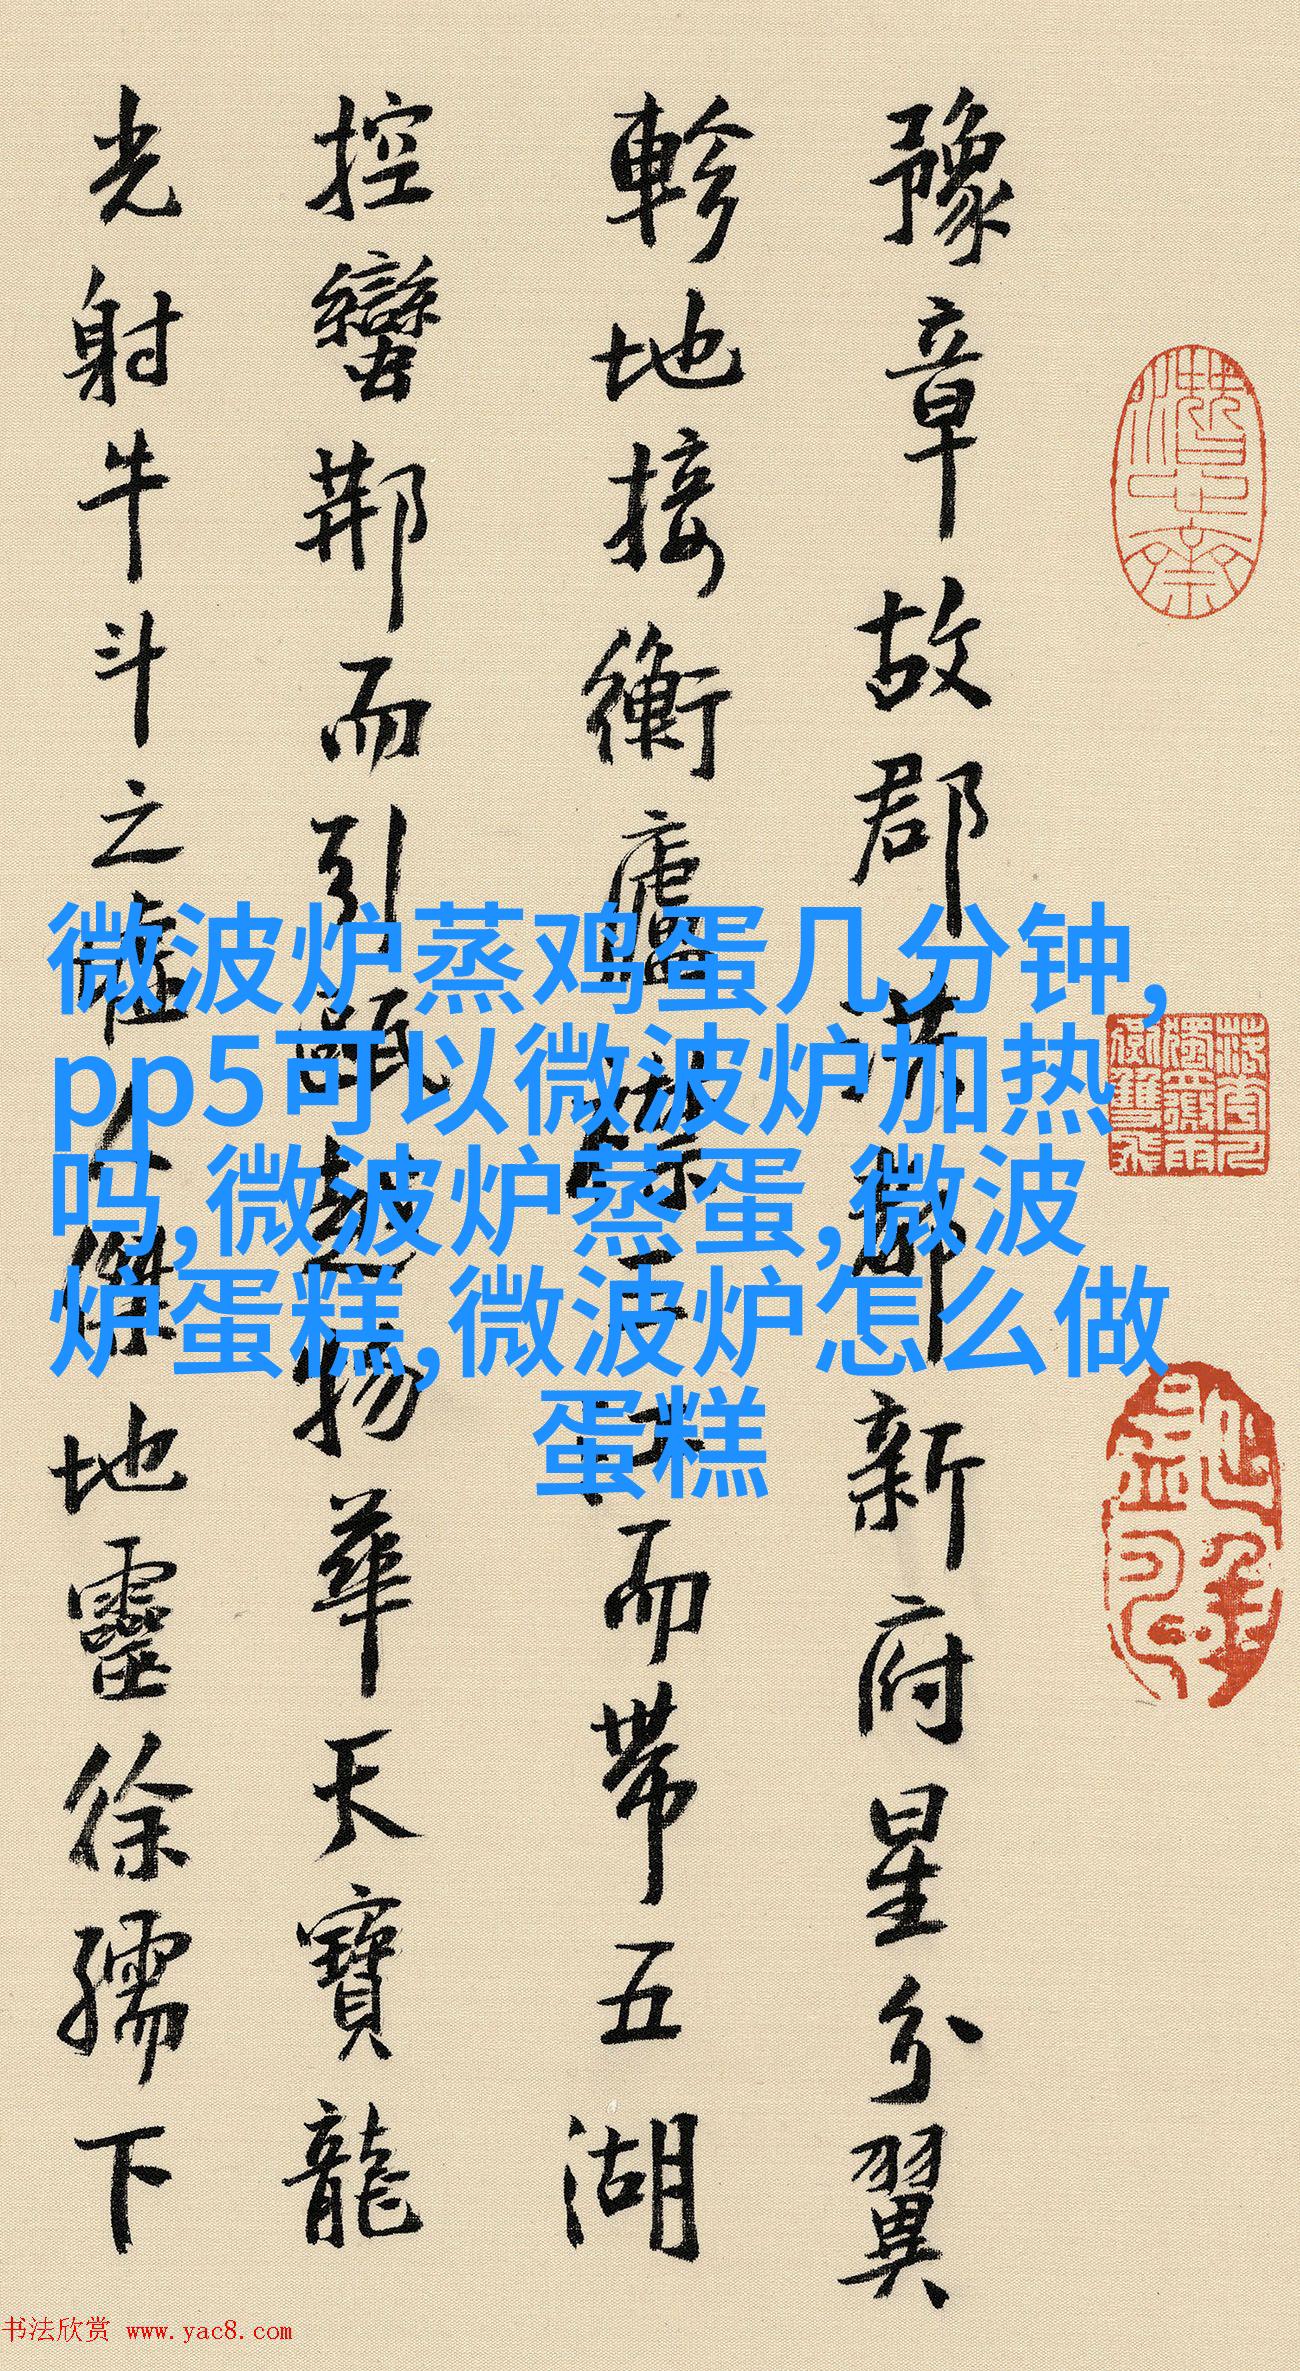 豫章故郡洪都新府星分翼
軫地接衡廬襟三江而帶五湖
控蠻荆而引甌越物華天寶龍
光射牛斗之墟人傑地靈徐孺下
微波炉蒸鸡蛋几分钟,
pp5可以微波炉加热
吗,微波炉蒸蛋,微波
炉蛋糕,微波炉怎么做
蛋糕
书法欣赏 www.yac8.com